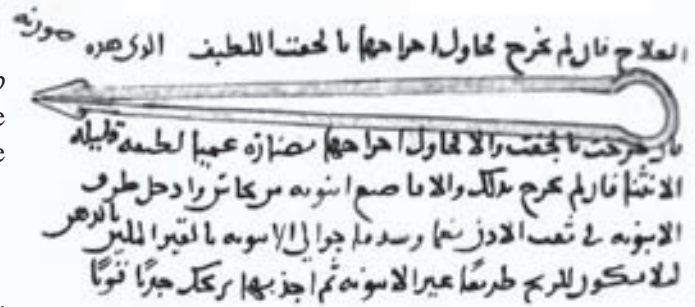 العلاج فان لم يخرج فحاول اخراجها بالجفت اللطيف الذي هذه صورته
فان خرجت بالجفت والا فحاول اخراجها بصنارة عميا لطيفة قليلة
الانثنا فان لم يخرج بذلك والا فاصنع انبوبه من نحاس وادخل طرف
الانبوبه في ثقب الاذن نعما وسد ما حوالي الانبوبه بالقير الملين بالدهن
لئلا يكون للريح طريقا غير الانبوبه ثم اجذبها بريحك جذبًا قويًا
e
e